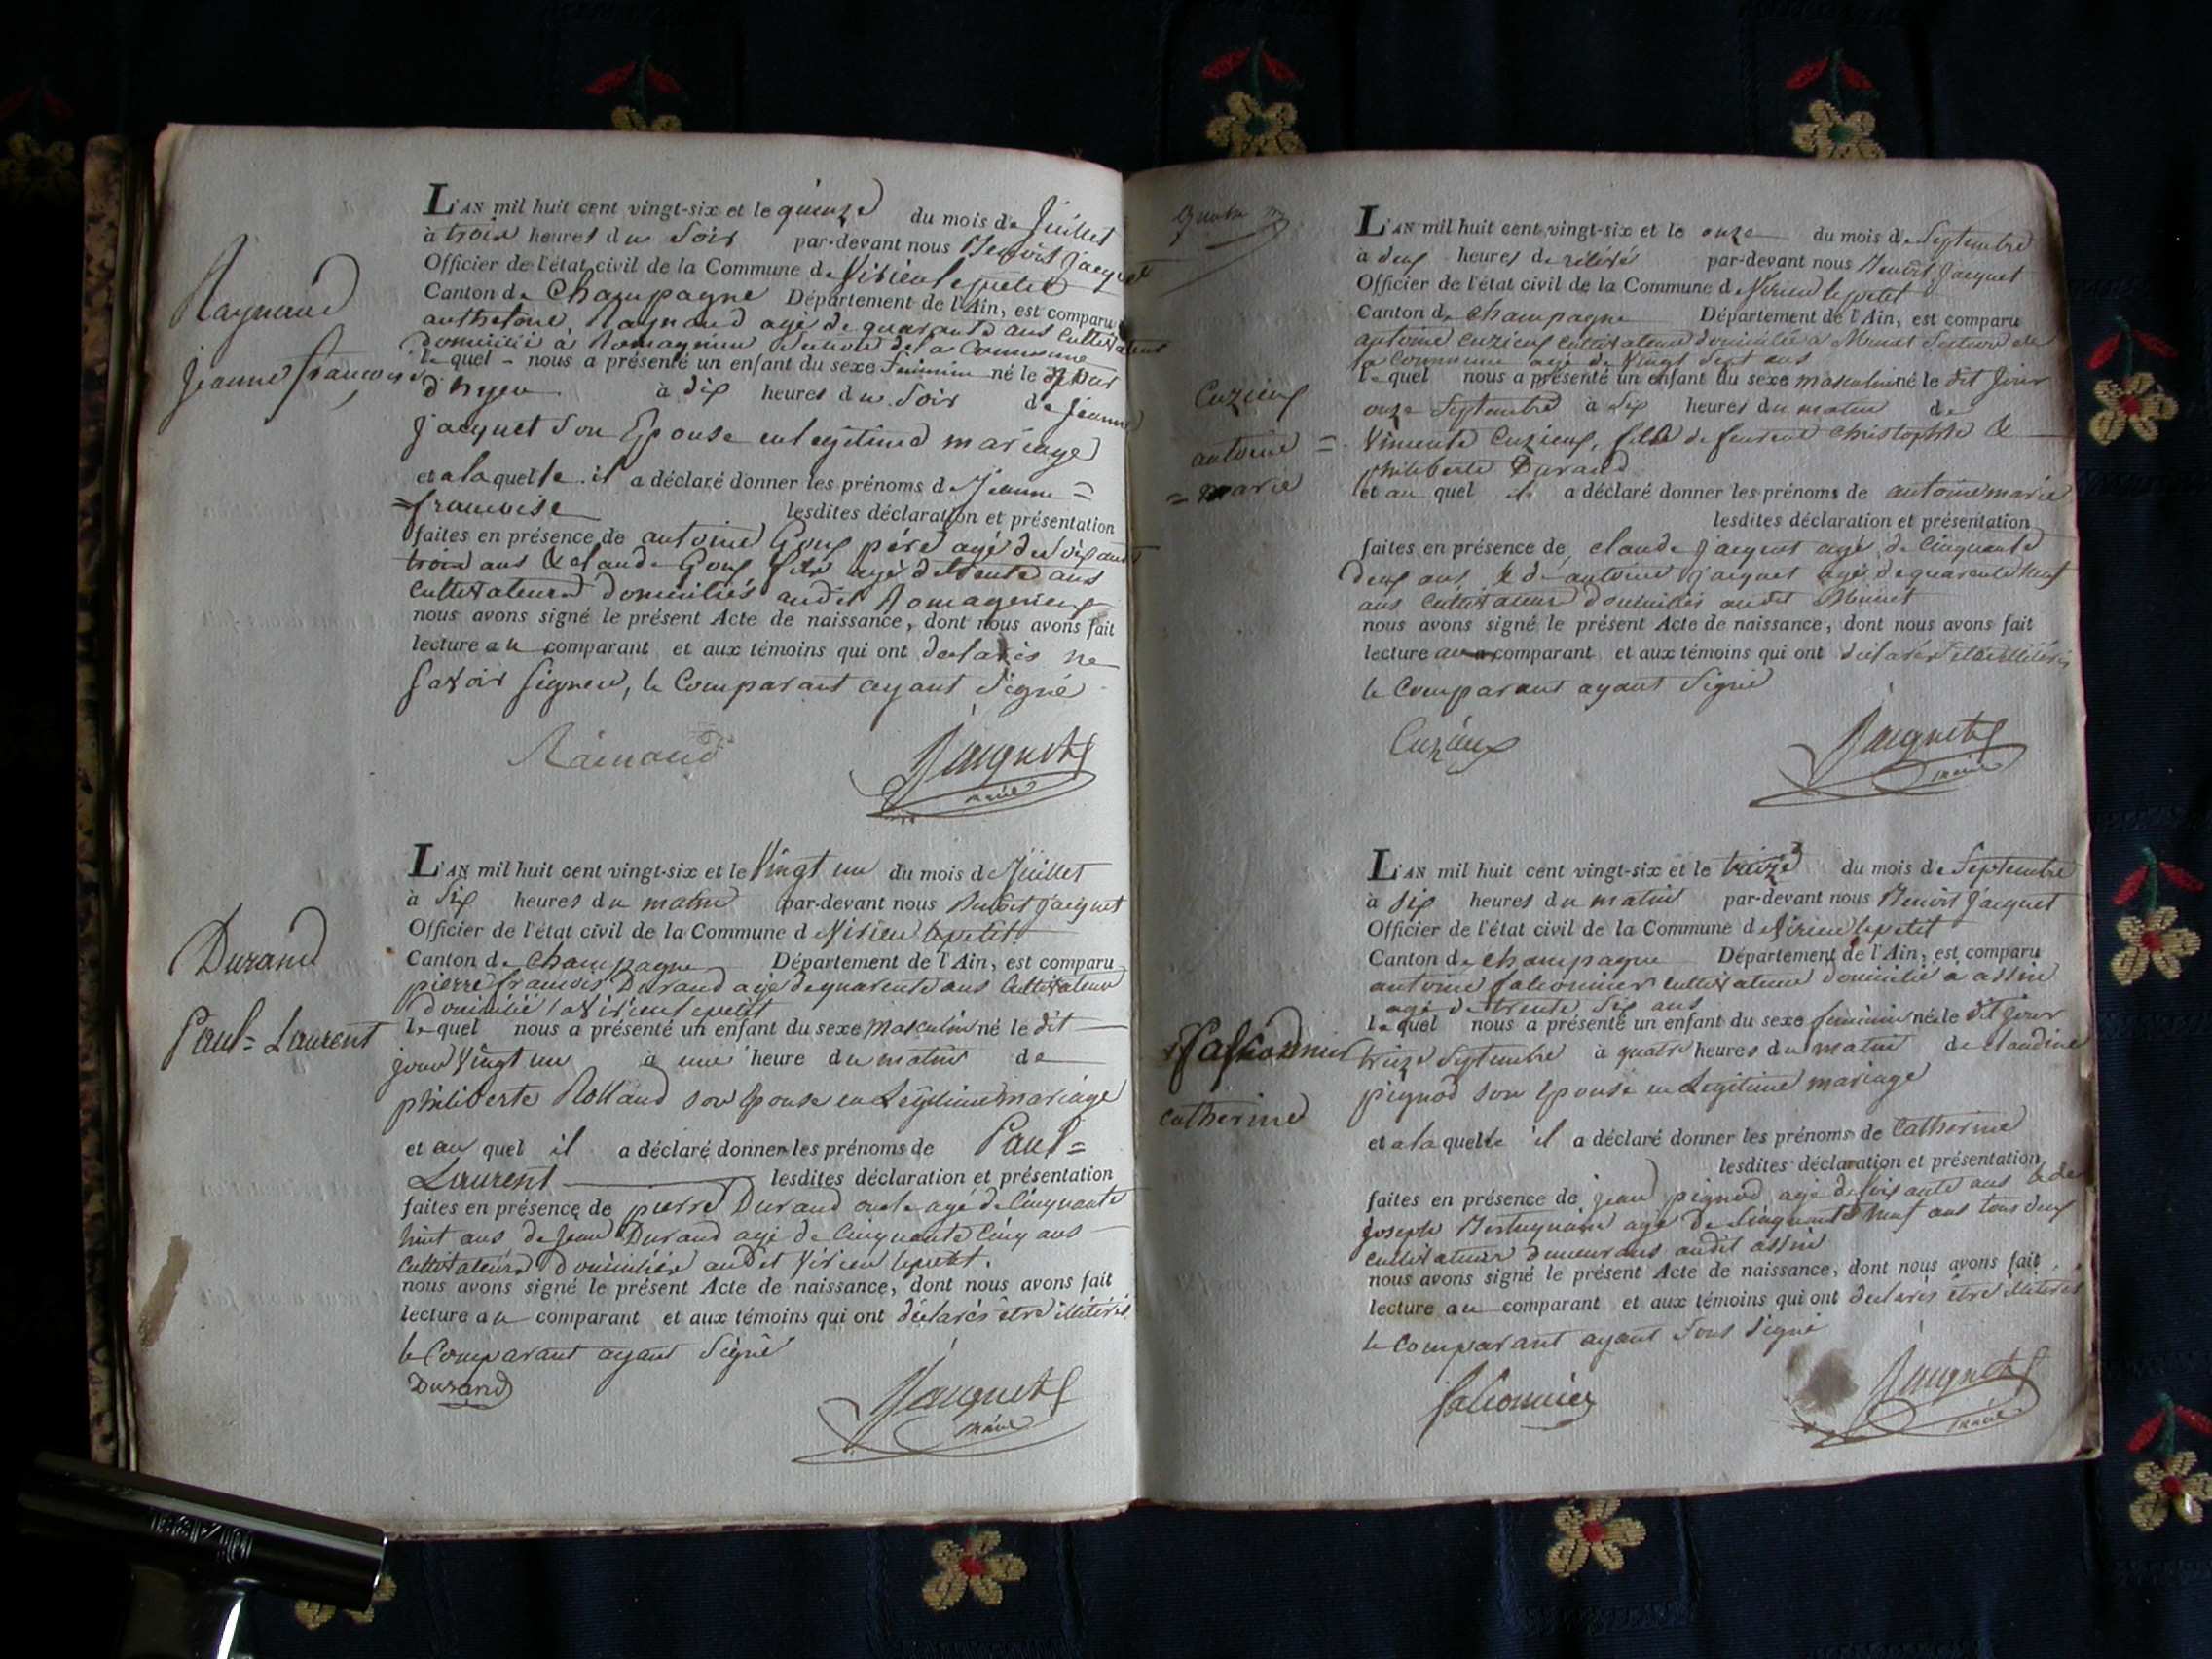 Raynaud
Jeanne françoise
L'AN mil huit cent vingt-six et le quinze du mois de Juillet
à trois heures du Soir par-devant nous Benoit Jacquet
Officier de l'état civil de la Commune de Virieu le petit
Canton de Champagne Département de l'Ain, est comparu
anthelme Raynaud agé de quarante ans Cultivateur
domicilié à Romagnieu Section de la Commune
lequel nous a présenté un enfant du sexe feminin né le
d'hyer à dix heures du Soir de Jeanne
Jacquet Son Epouse en legitime mariage
et a laquelle il a déclaré donner les prénoms de Jeanne =
= francoise lesdites déclaration et présentation
faites en présence de antoine Goux père agé de soixante
trois ans & claude Goux fils agé de trente ans
Cultivateurs domiciliés audit Romagnieu
nous avons signé le présent Acte de naissance, dont nous avons fait
lecture au comparant et aux témoins qui ont déclarés ne
Savoir Signer, le Comparant ayant Signé
Rainaud Jacquet
maire
Durand
Paul = Laurent
L'AN mil huit cent vingt-six et le Vingt un du mois de Juillet
à Six heures du matin par-devant nous Benoit Jacquet
Officier de l'état civil de la Commune de Virieu le petit
Canton de Champagne Département de l'Ain, est comparu
pierre francois Durand agé de quarente ans Cultivateur
domicilié a Virieu le petit
lequel nous a présenté un enfant du sexe masculin né le dit
jour Vingt un à une heure du matin de
philiberte Rolland son Epouse en Legitime mariage
et au quel il a déclaré donner les prénoms de Paul =
Laurent lesdites déclaration et présentation
faites en présence de pierre Durand oncle agé de Cinquante
huit ans de Jean Durand agé de Cinquante Cinq ans
Cultivateurs domiciliés audit Virieu le petit.
nous avons signé le présent Acte de naissance, dont nous avons fait
lecture au comparant et aux témoins qui ont déclarés être illiterés
le Comparant ayant Signé
Durand Jacquet
maire
Cuzieux
antoine =
= marie
L'AN mil huit cent vingt-six et le onze du mois de Septembre
à deux heures de par-devant nous Benoit Jacquet
Officier de l'état civil de la Commune de Virieu le petit
Canton de Champagne Département de l'Ain, est comparu
antoine Cuzieux Cultivateur domicilié a Section de
la Commune agé de Vingt Sept ans
lequel nous a présenté un enfant du sexe masculin né le dit Jour
onze Septembre à Six heures du matin de
Cuzieux, fille de christophe &
philiberte Durand
et au quel il a déclaré donner les prénoms de antoine marie
lesdites déclaration et présentation
faites en présence de claude Jacquet agé de Cinquante
deux ans & de antoine Jacquet agé de quarente neuf
ans Cultivateurs domiciliés audit
nous avons signé le présent Acte de naissance, dont nous avons fait
lecture au comparant et aux témoins qui ont déclarés être illiterés
le Comparant ayant Signé
Cuzieux Jacquet
maire
falconnier
catherine
L'AN mil huit cent vingt-six et le treize du mois de Septembre
à Six heures du matin par-devant nous Benoit Jacquet
Officier de l'état civil de la Commune de Virieu le petit
Canton de Champagne Département de l'Ain, est comparu
antoine falconnier cultivateur domicilié à assin
agé de trente Six ans
lequel nous a présenté un enfant du sexe feminin né le dit Jour
treize Septembre à quatre heures du matin de claudine
pignod son Epouse en Legitime mariage
et a laquelle il a déclaré donner les prénoms de Catherine
lesdites déclaration et présentation
faites en présence de jean pignod agé de Soixante ans & de
joseph agé de Cinquante neuf ans tous deux
Cultivateurs demeurans audit assin
nous avons signé le présent Acte de naissance, dont nous avons fait
lecture au comparant et aux témoins qui ont declarés être illiterés
le Comparant ayant Sous Signé
falconnier Jacquet
maire